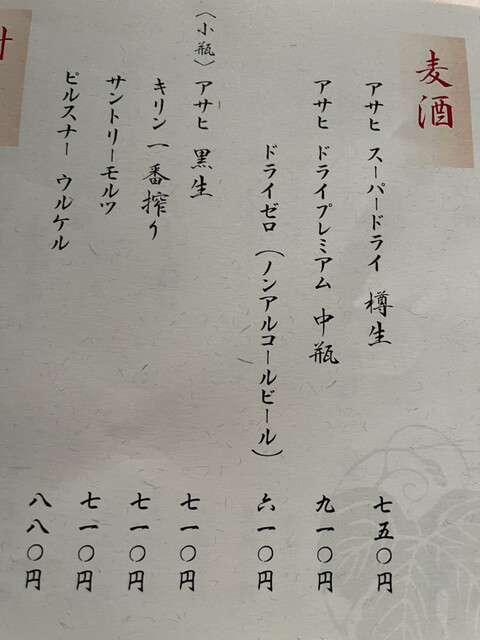 麦酒
アサヒ スーパードライ 樽生 七五〇円
アサヒ ドライプレミアム 中瓶 九一〇円
ドライゼロ（ノンアルコールビール） 六一〇円
〈小瓶〉アサヒ 黒生 七一〇円
キリン一番搾り 七一〇円
サントリーモルツ 七一〇円
ピルスナー ウルケル 八八〇円